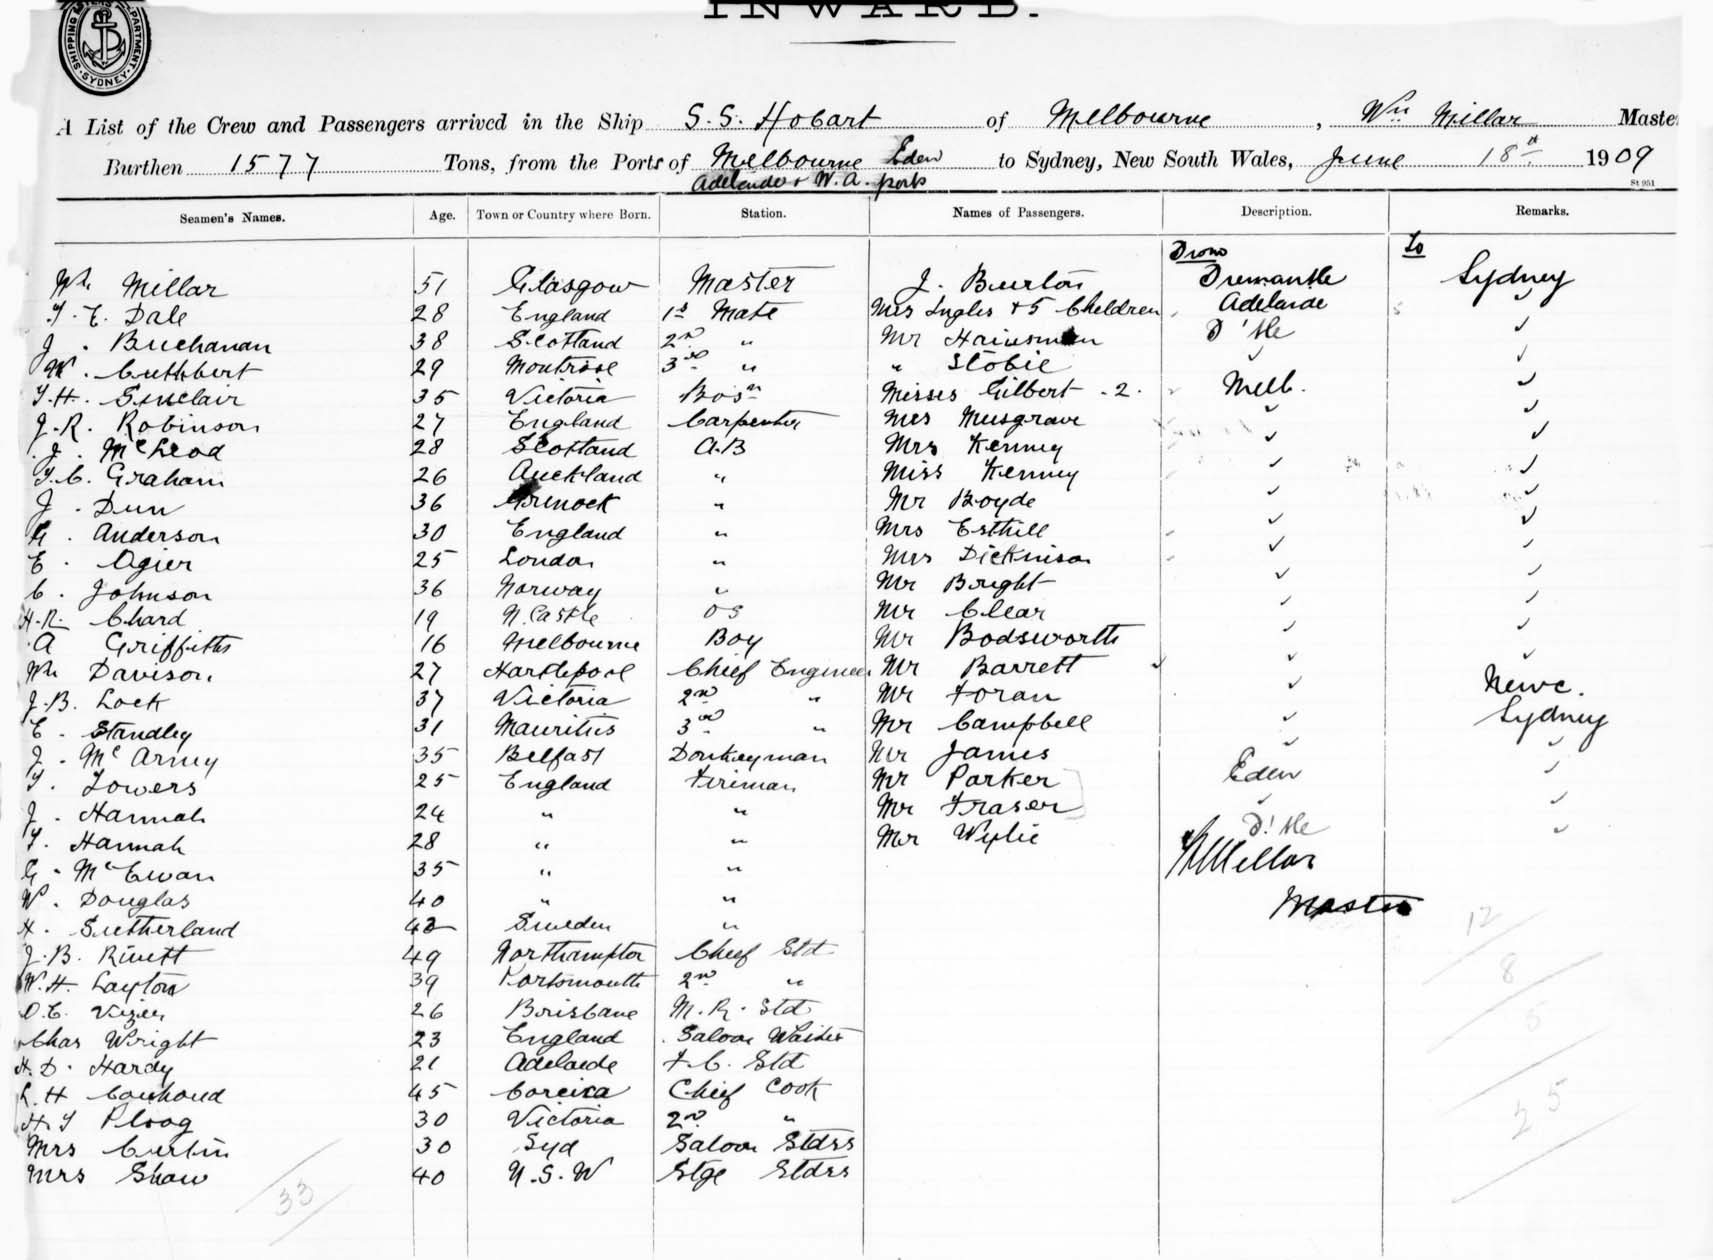 SHIPPING MASTER'S DEPARTMENT SYDNEY
INWARD.
A List of the Crew and Passengers arrived in the Ship S.S. Hobart of Melbourne, Wm Millar Master
Burthen 1577 Tons, from the Ports of Melbourne Eden to Sydney, New South Wales, June 18th 1909
Adelaide & W.A. ports
St 951
Seamen's Names. Age. Town or Country where Born. Station. Names of Passengers. Description. Remarks.
From To
Wm Millar 51 Glasgow Master J. Burton Fremantle Sydney
T. E. Dale 28 England 1st Mate Mrs Ingles + 5 Children Adelaide ✓
J. Buchanan 38 Scotland 2nd " Mr Hainsman D'tto ✓
W. Cuthbert 29 Montrose 3rd " " Stobie ✓ ✓
T.H. Sinclair 35 Victoria Bosn Misses Gilbert - 2. Melb. ✓
J.R. Robinson 27 England Carpenter Mrs Musgrave ✓ ✓
J. McLeod 28 Scotland A.B Mrs Kenney ✓ ✓
T.C. Graham 26 Auckland " Miss Kenney ✓ ✓
J. Dun 36 Greenock " Mr Boyde ✓ ✓
G. Anderson 30 England " Mrs Esthill ✓ ✓
E. Ogier 25 London " Mrs Dickinson ✓ ✓
C. Johnson 36 Norway " Mr Bright ✓ ✓
H.R. Chard 19 N.Castle OS Mr Clear ✓ ✓
A Griffiths 16 Melbourne Boy Mr Bodsworth ✓ ✓
Wm Davison 27 Hartlepool Chief Engineer Mr Barrett ✓ ✓
J.B. Lock 37 Victoria 2nd " Mr Foran ✓ Newc.
E. Standley 31 Mauritius 3rd " Mr Campbell ✓ Sydney
J. McArney 35 Belfast Donkeyman Mr James ✓ ✓
T. Towers 25 England Fireman Mr Parker Eden ✓
J. Hannah 24 " " Mr Fraser ✓ ✓
T. Hannah 28 " " Mr Wylie D'tto ✓
G. McEwan 35 " " WMillar
W. Douglas 40 " " Master
H. Sutherland 42 Sweden " 12
J.B. Rivett 49 Northampton Chief Std
W.H. Layton 39 Portsmouth 2nd " 8
O.E. Vizer 26 Brisbane M.R. Std 5
Chas Wright 23 England Saloon Waiter
H.D. Hardy 21 Adelaide F.C. Std
L.H 45 Chief Cook 25
H.T Ploog 30 Victoria 2nd "
Mrs Curtin 30 Syd Saloon Stdss
Mrs Shaw 40 N.S.W Stge Stdss
33